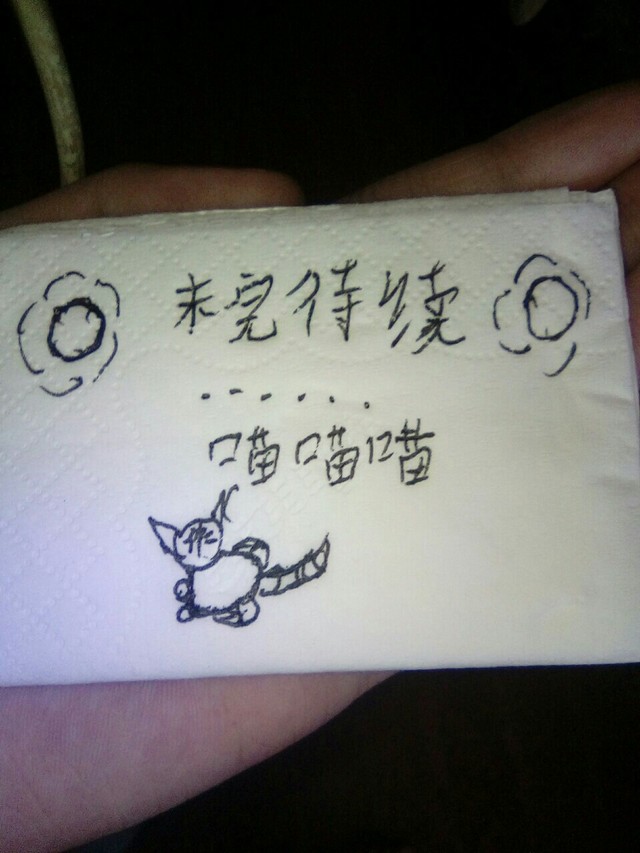 未完待续
......
喵喵喵